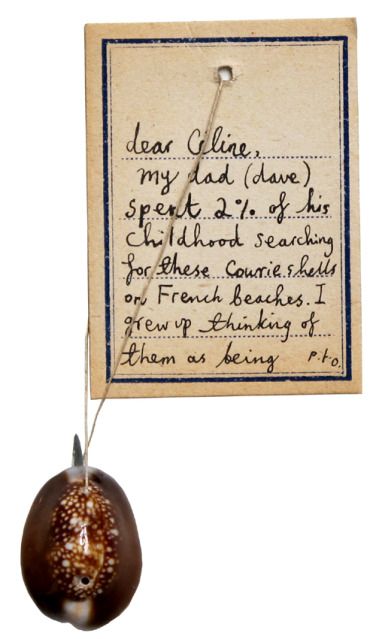 dear Céline,
my dad (dave)
spent 2% of his
childhood searching
for these Courie shells
on French beaches. I
grew up thinking of
them as being P.t.O.